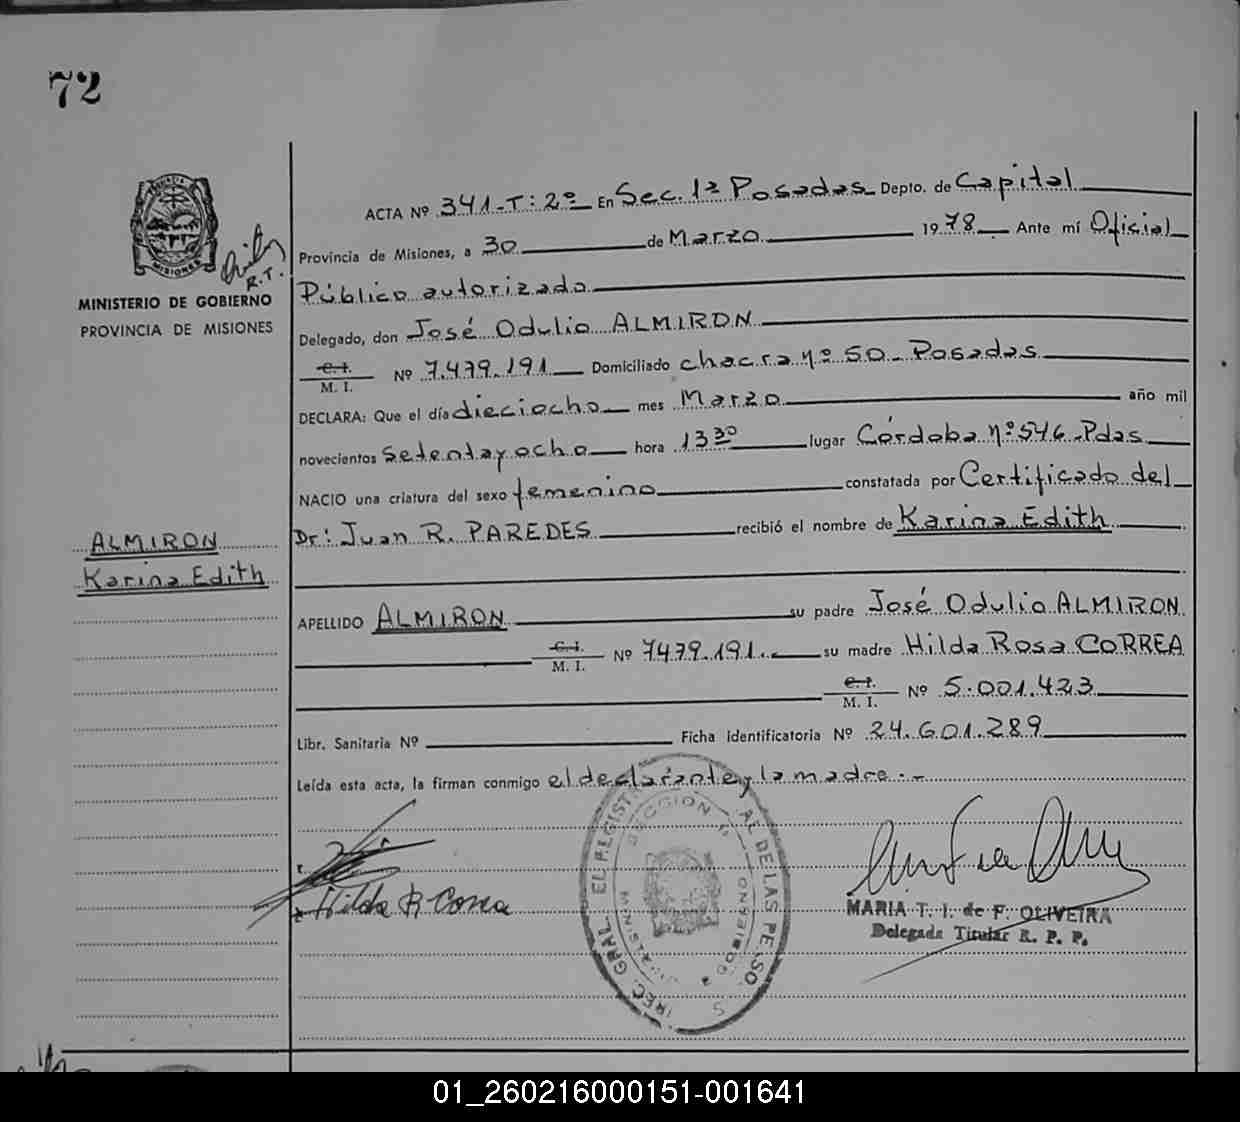 72
MINISTERIO DE GOBIERNO
PROVINCIA DE MISIONES
R.T.
ACTA Nº 341-T: 2º En Sec. 1ª Posadas Depto. de Capital
Provincia de Misiones, a 30 de Marzo 1978 Ante mí Oficial
Público autorizado
Delegado, don José Odulio ALMIRON
C.I. M. I. Nº 7.479.191 Domiciliado chacra nº 50 - Posadas
DECLARA: Que el día dieciocho mes Marzo año mil
novecientos setenta y ocho hora 13 30 lugar Córdoba nº 546 - Pdas
NACIO una criatura del sexo femenino constatada por Certificado del
Dr: Juan R. PAREDES recibió el nombre de Karina Edith
ALMIRON
Karina Edith
APELLIDO ALMIRON su padre José Odulio ALMIRON
C.I. M. I. Nº 7479.191.- su madre Hilda Rosa CORREA
C.I. M. I. Nº 5.001.423
Libr. Sanitaria Nº Ficha Identificatoria Nº 24.601.289
Leída esta acta, la firman conmigo el declarante y la madre.-
Hilda R Correa
MARIA T. I. de F. OLIVEIRA
Delegada Titular R. P. P.
01_260216000151-001641